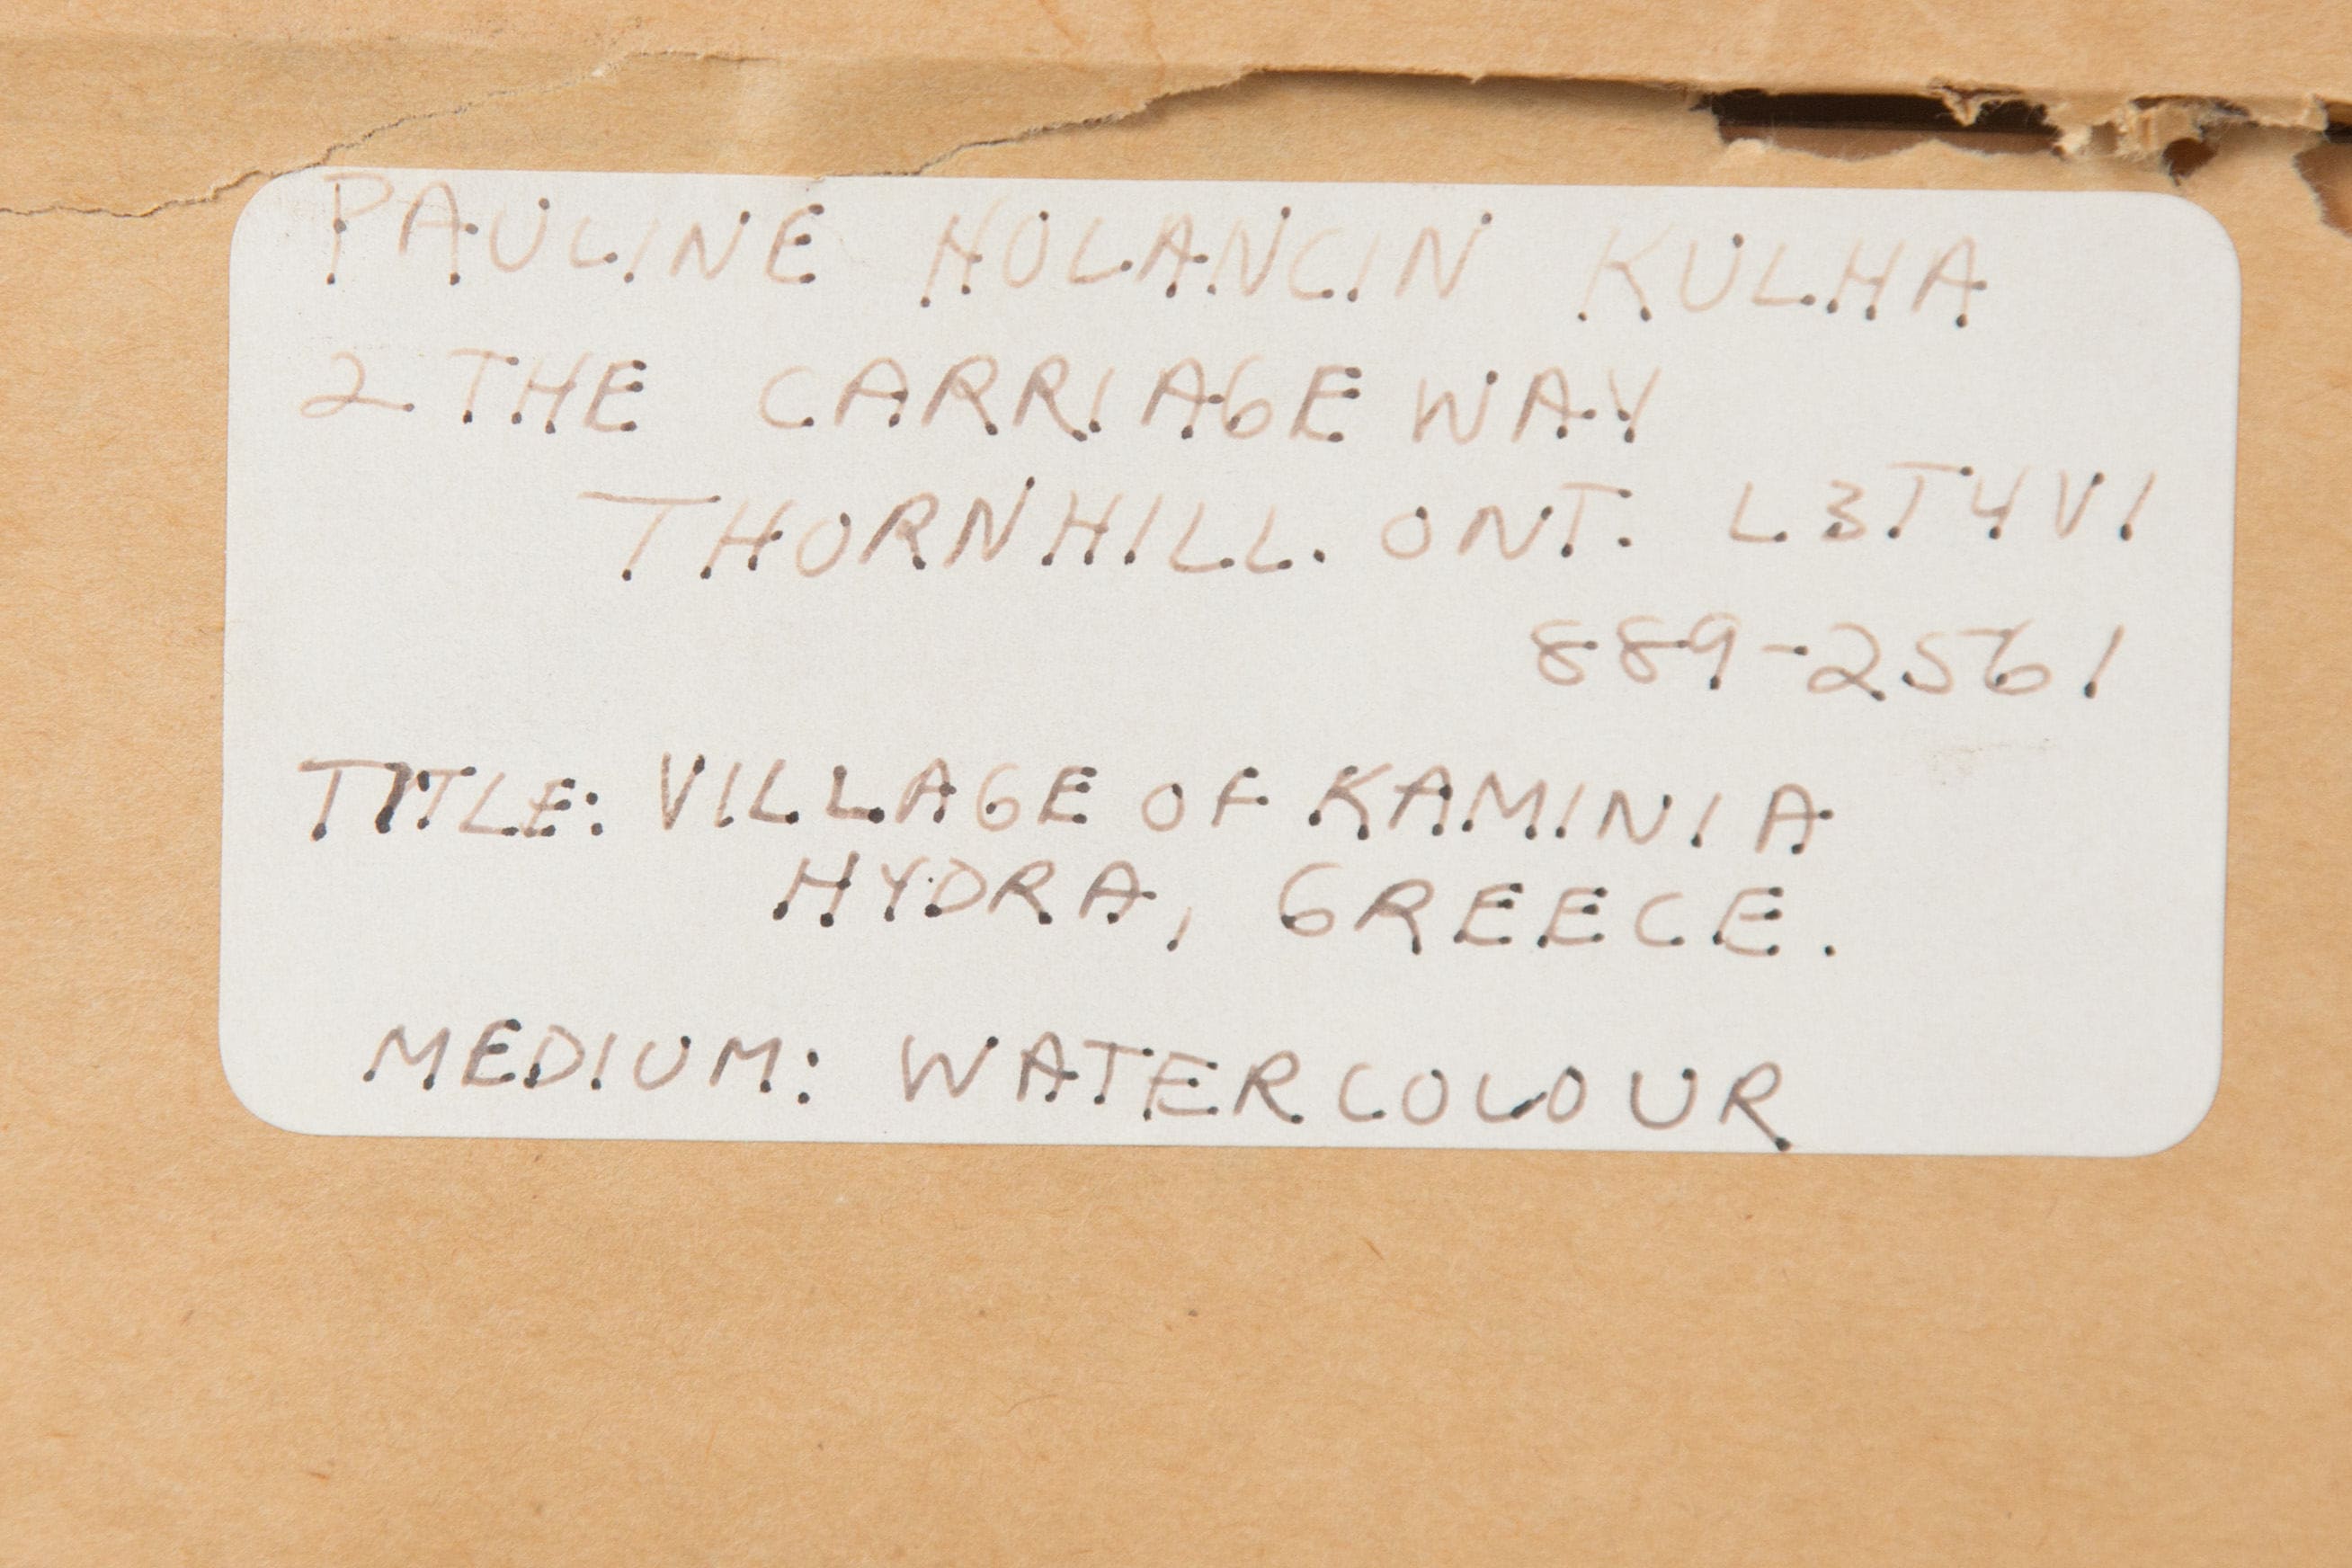 PAULINE HOLANCIN KULHA
2 THE CARRIAGE WAY
THORNHILL. ONT. L3T4V1
889-2561
TITLE: VILLAGE OF KAMINIA
HYDRA, GREECE.
MEDIUM: WATERCOLOUR